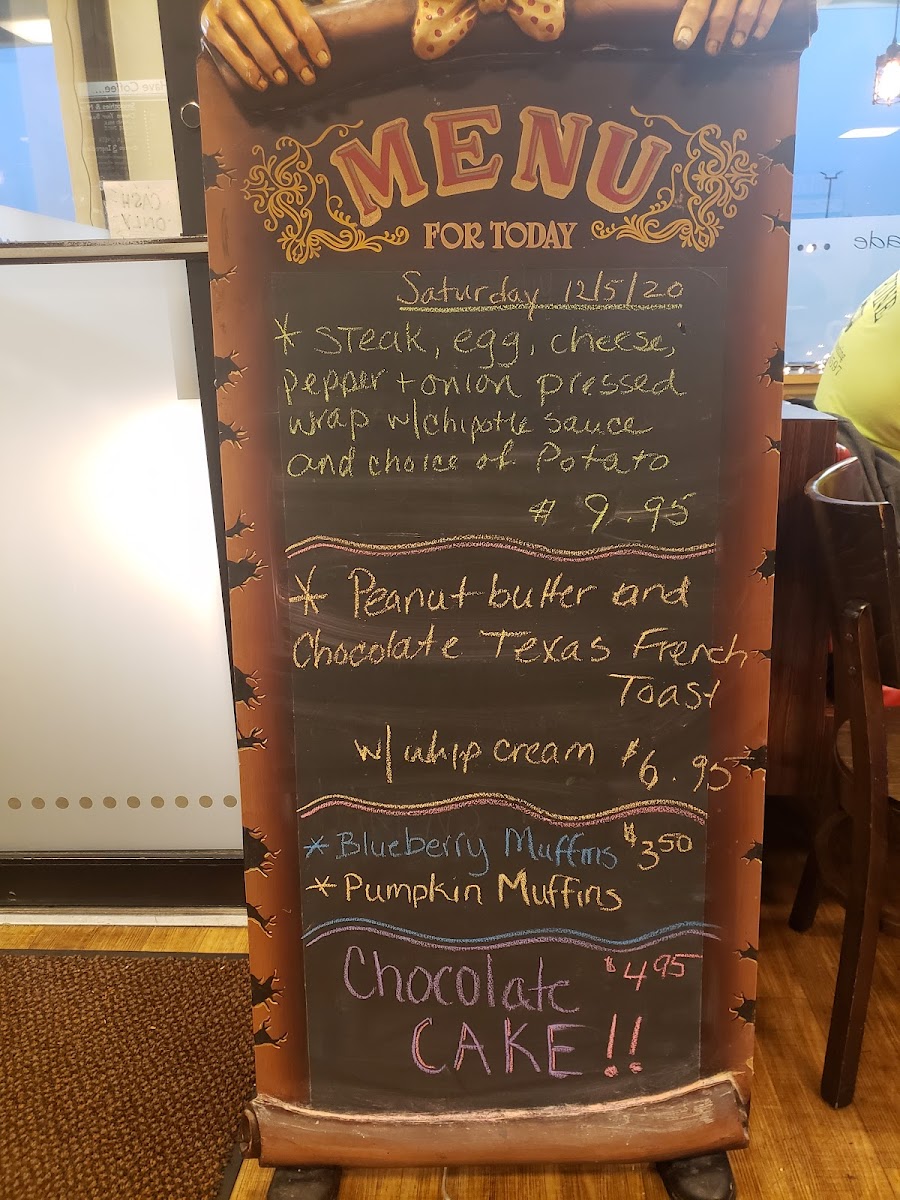 Have Coffee...
CASH
ONLY
MENU
FOR TODAY
Saturday 12/5/20
* Steak, egg, cheese,
pepper + onion pressed
wrap w/chipotle sauce
and choice of Potato
$ 9.95
* Peanut butter and
Chocolate Texas French
Toast
w/whip cream $6.95
* Blueberry Muffins $3.50
* Pumpkin Muffins
Chocolate $4.95
CAKE!!
ade